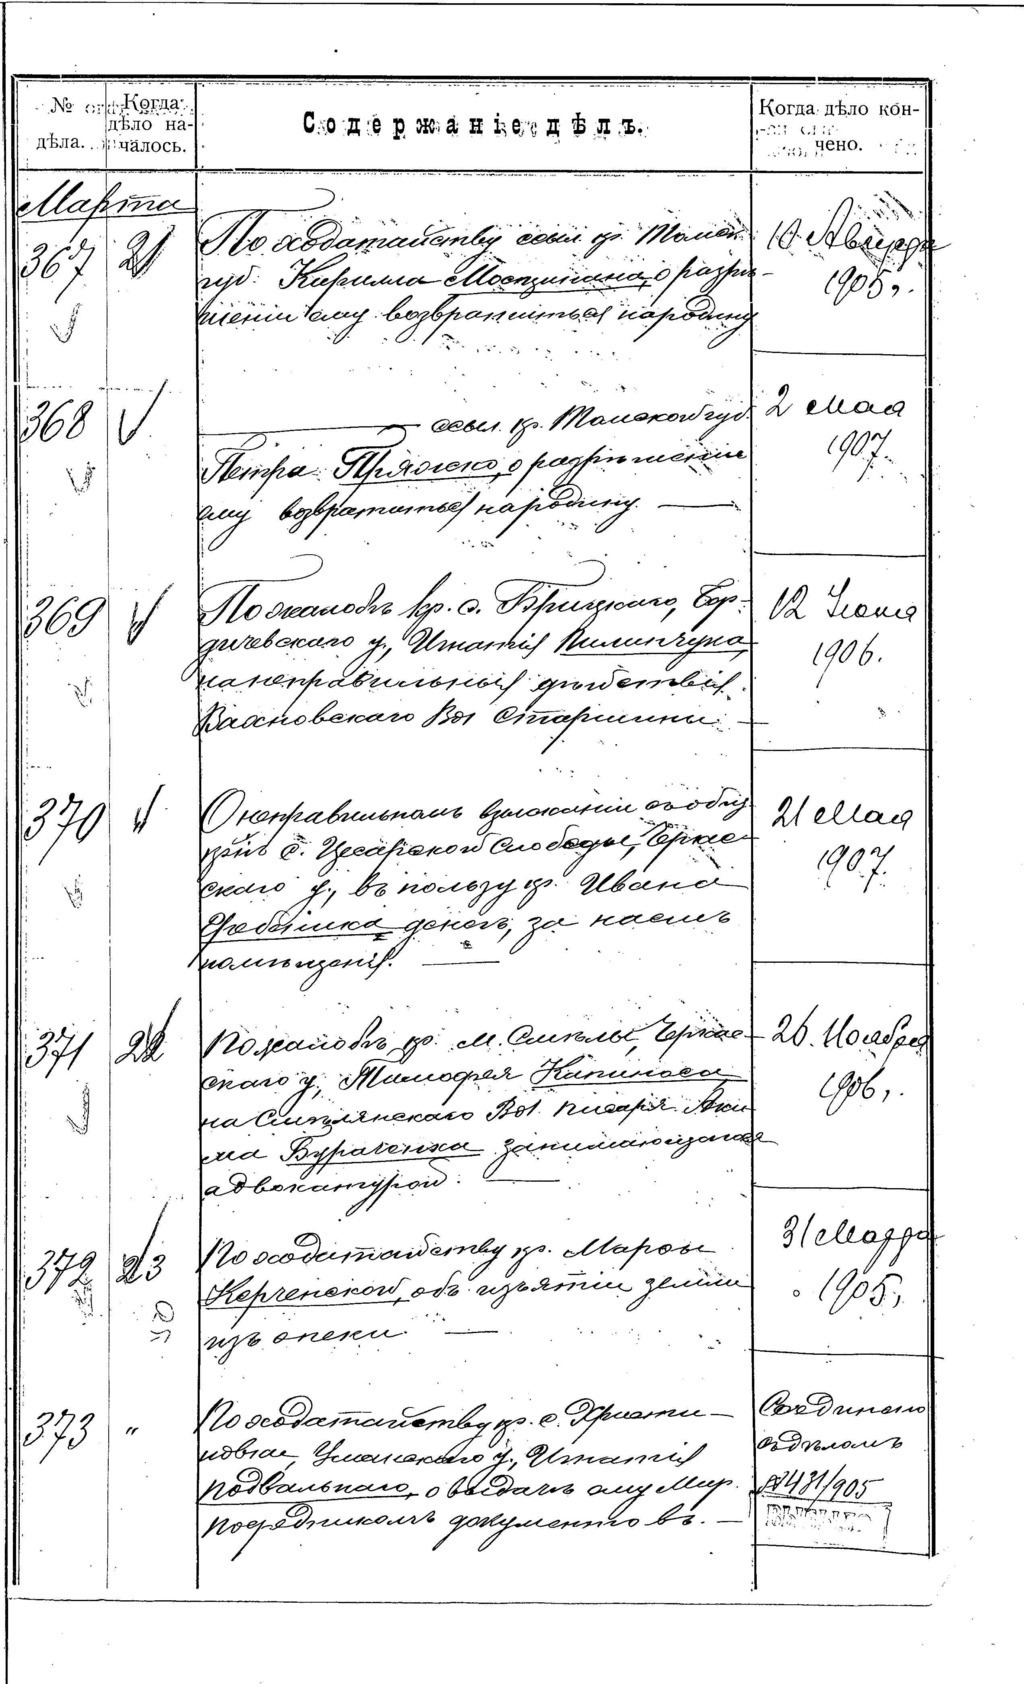 № Когда
дѣло на-
дѣла. чалось.
Содержаніе дѣлъ.
Когда дѣло кон-
чено.
Марта
367 21 По ходатайству ссыл. кр. Томск.
губ. Кирилла о разрѣ-
шеніи ему возвратиться на родину
1905 г.
368 ссыл. кр. Томской губ.
Петра о разрѣшеніи
ему возвратиться на родину.
2 Мая
1907.
369 По жалобѣ кр. с. Бричкаго, Бер-
дичевскаго у., Игнатія Пилипчука,
на неправильныя дѣйствія
Вахновскаго Вол Старшины
12 Іюня
1906.
370 О неправильномъ взысканіи съ общ
с. Цесарской Слободы, Черкас-
скаго у., въ пользу кр. Ивана
денегъ, за наемъ
помѣщенія.
21 Мая
1907.
371 22 По жалобѣ кр. м. Смѣлы, Черкас-
скаго у, Тимофея Капиноса
на Смѣлянскаго Вол. писаря Аки
ма занимающагося
адвокатурой.
20 Ноября
1906 г.
372 23 По ходатайству кр. Марфы
Керченской, объ изъятіи земли
изъ опеки
31 Марта
1905 г.
373 " По ходатайству кр. с. Христи-
новки, Уманскаго у., Игнатія
Подвальнаго, о выдачѣ ему Мир.
Посредникомъ документовъ.
Соединено
съ дѣломъ
№ 431/905